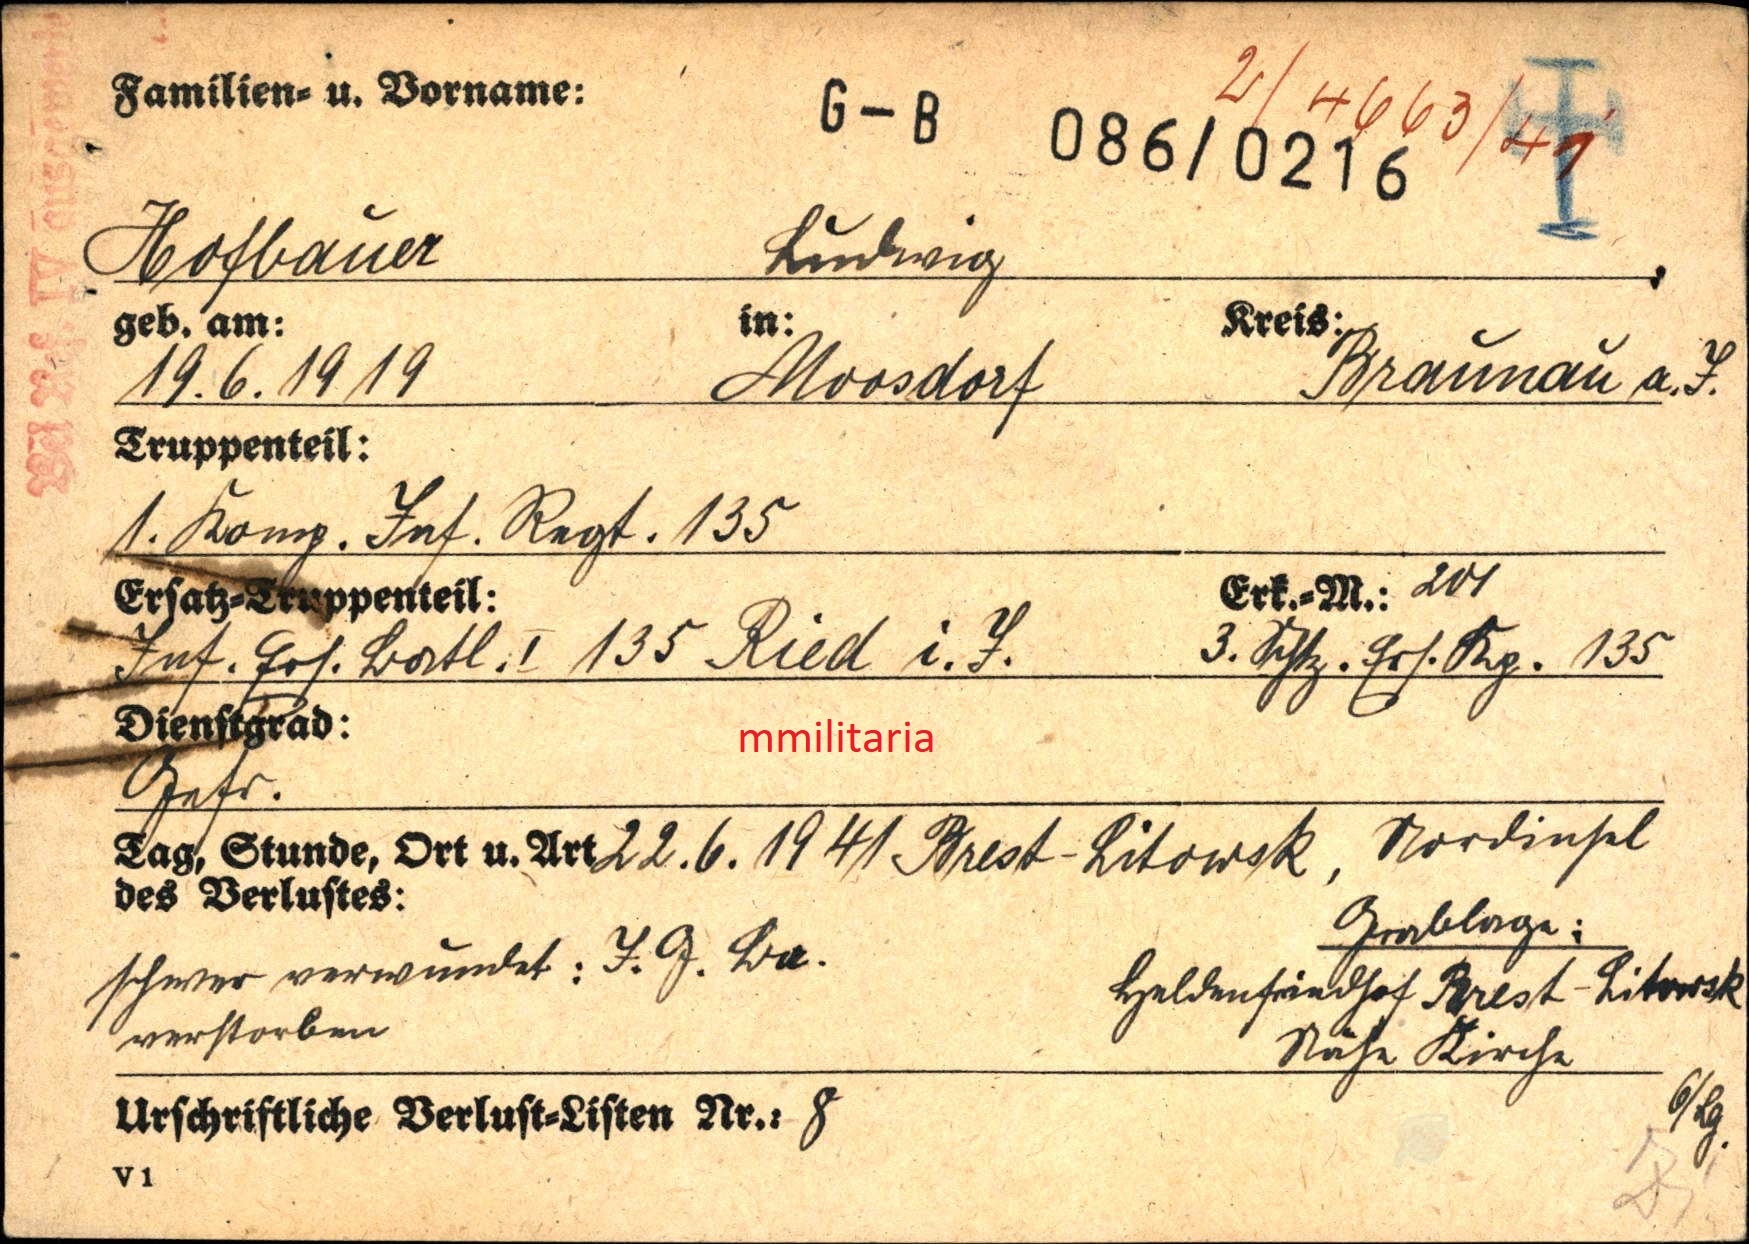 Familien- u. Vorname:
G-B 086/0216
2/4663/41
Hofbauer Ludwig
geb. am: in: Kreis:
19.6.1919 Moosdorf Braunau a.I.
Truppenteil:
1. Komp. Inf. Regt. 135
Ersatz-Truppenteil: Erk.-M.: 201
Inf. Ers. Batl. I 135 Ried i. I. 3. Schtz. Ers. Kp. 135
Dienstgrad:
mmilitaria
Gefr.
Tag, Stunde, Ort u. Art 22.6.1941 Brest-Litowsk, Nordinsel
des Verlustes:
Grablage:
schwer verwundet: I. G. Ba.
Heldenfriedhof Brest-Litowsk
verstorben
Nähe Kirche
Urschriftliche Verlust-Listen Nr.: 8
V 1